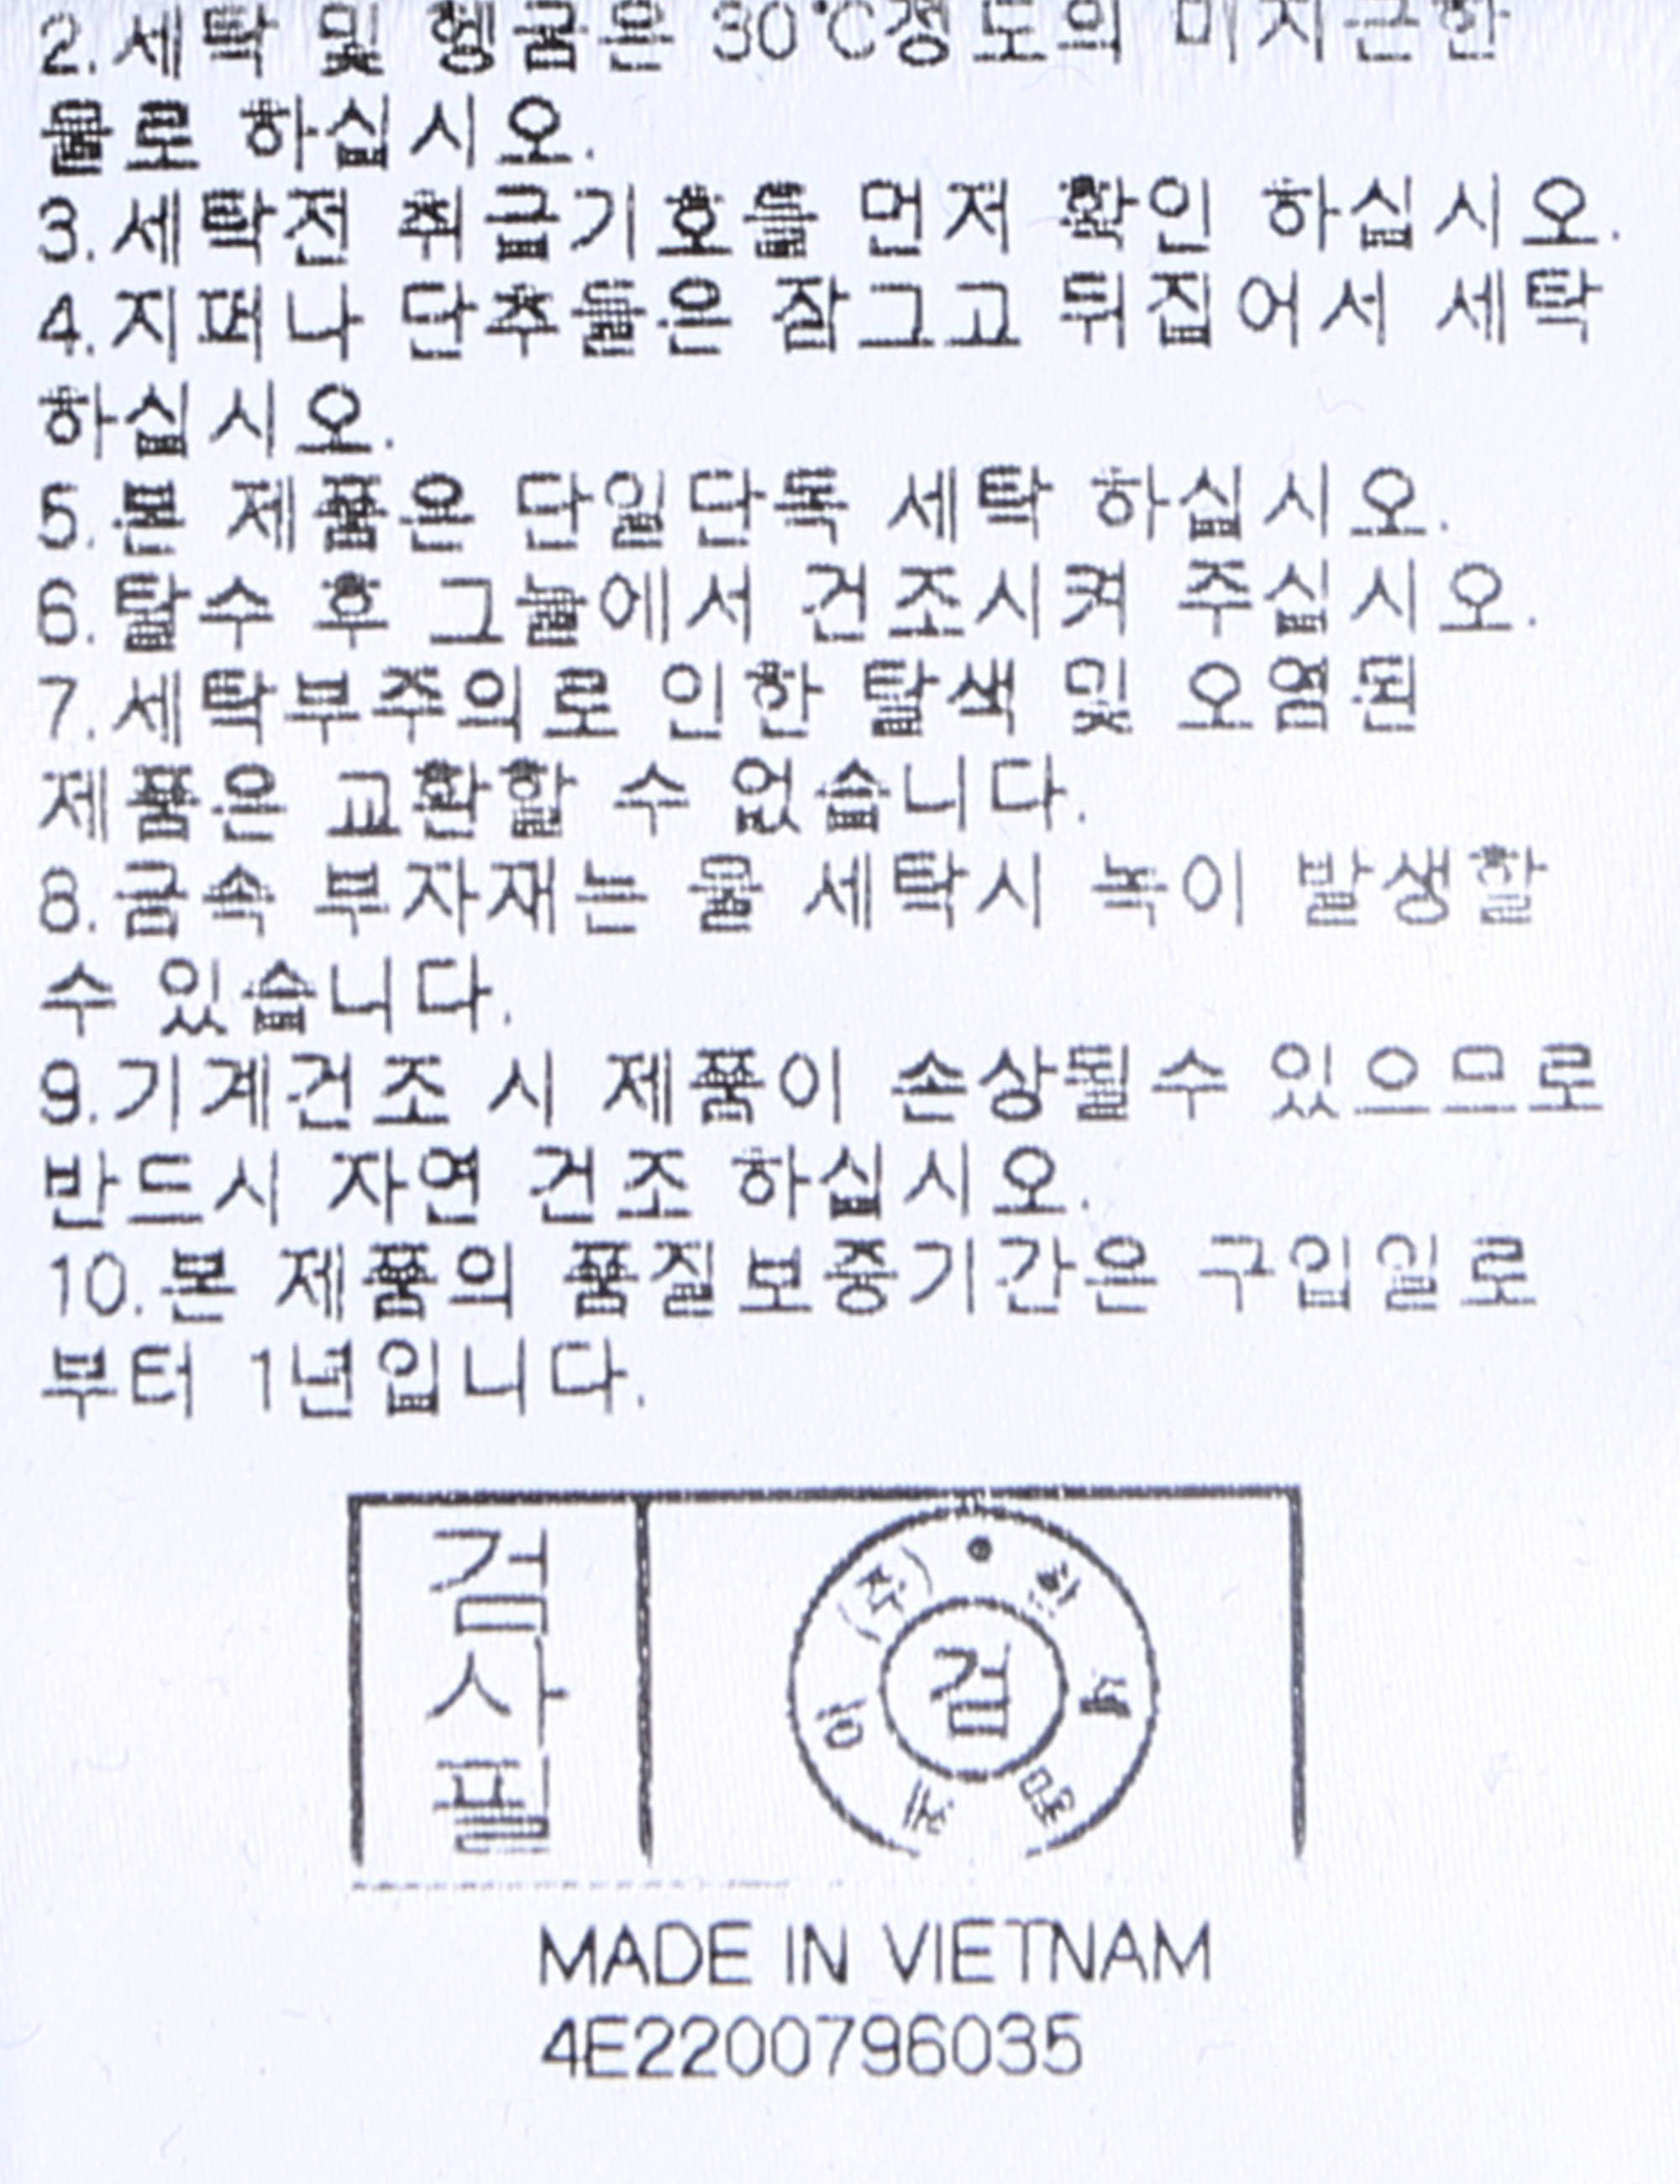 2.세탁 및 헹굼은 30℃정도의 미지근한
물로 하십시오.
3.세탁전 취급기호를 먼저 확인 하십시오.
4.지퍼나 단추들은 잠그고 뒤집어서 세탁
하십시오.
5.본 제품은 단일단독 세탁 하십시오.
6.탈수 후 그늘에서 건조시켜 주십시오.
7.세탁부주의로 인한 탈색 및 오염된
제품은 교환할 수 없습니다.
8.금속 부자재는 물 세탁시 녹이 발생할
수 있습니다.
9.기계건조 시 제품이 손상될수 있으므로
반드시 자연 건조 하십시오.
10.본 제품의 품질보증기간은 구입일로
부터 1년입니다.
검사필
(주)한세
검
MADE IN VIETNAM
4E2200796035